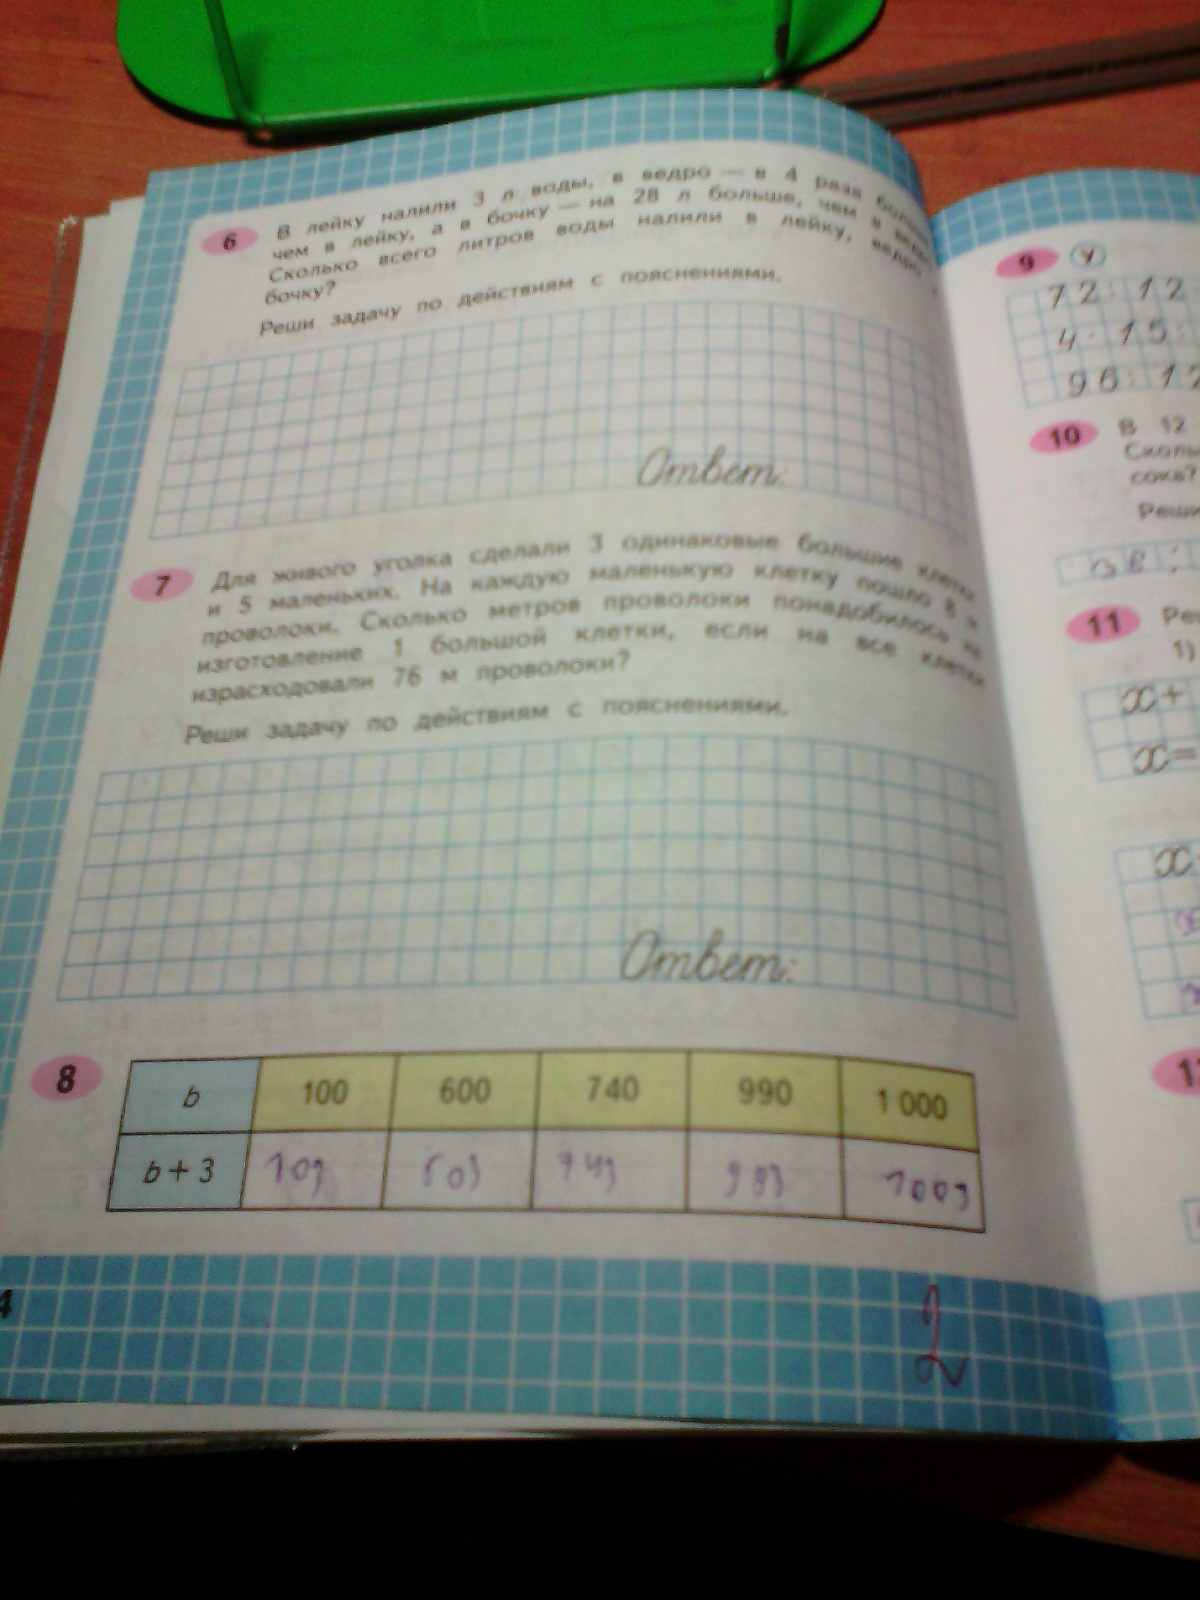 6 В лейку налили 3 л воды, в ведро — в 4 раза
чем в лейку, а в бочку — на 28 л больше, чем в
Сколько всего литров воды налили в лейку, ведро
бочку?
Реши задачу по действиям с пояснениями.
Ответ:
7 Для живого уголка сделали 3 одинаковые большие клетки
и 5 маленьких. На каждую маленькую клетку пошло 8 м
проволоки. Сколько метров проволоки понадобилось на
изготовление 1 большой клетки, если на все клетки
израсходовали 76 м проволоки?
Реши задачу по действиям с пояснениями.
Ответ:
8
b 100 600 740 990 1 000
b + 3 103 603 743 993 1003
4
2
9
72:12
4·15:
96:12
10 В 12
сока?
Реши
11
1)
x+
x=